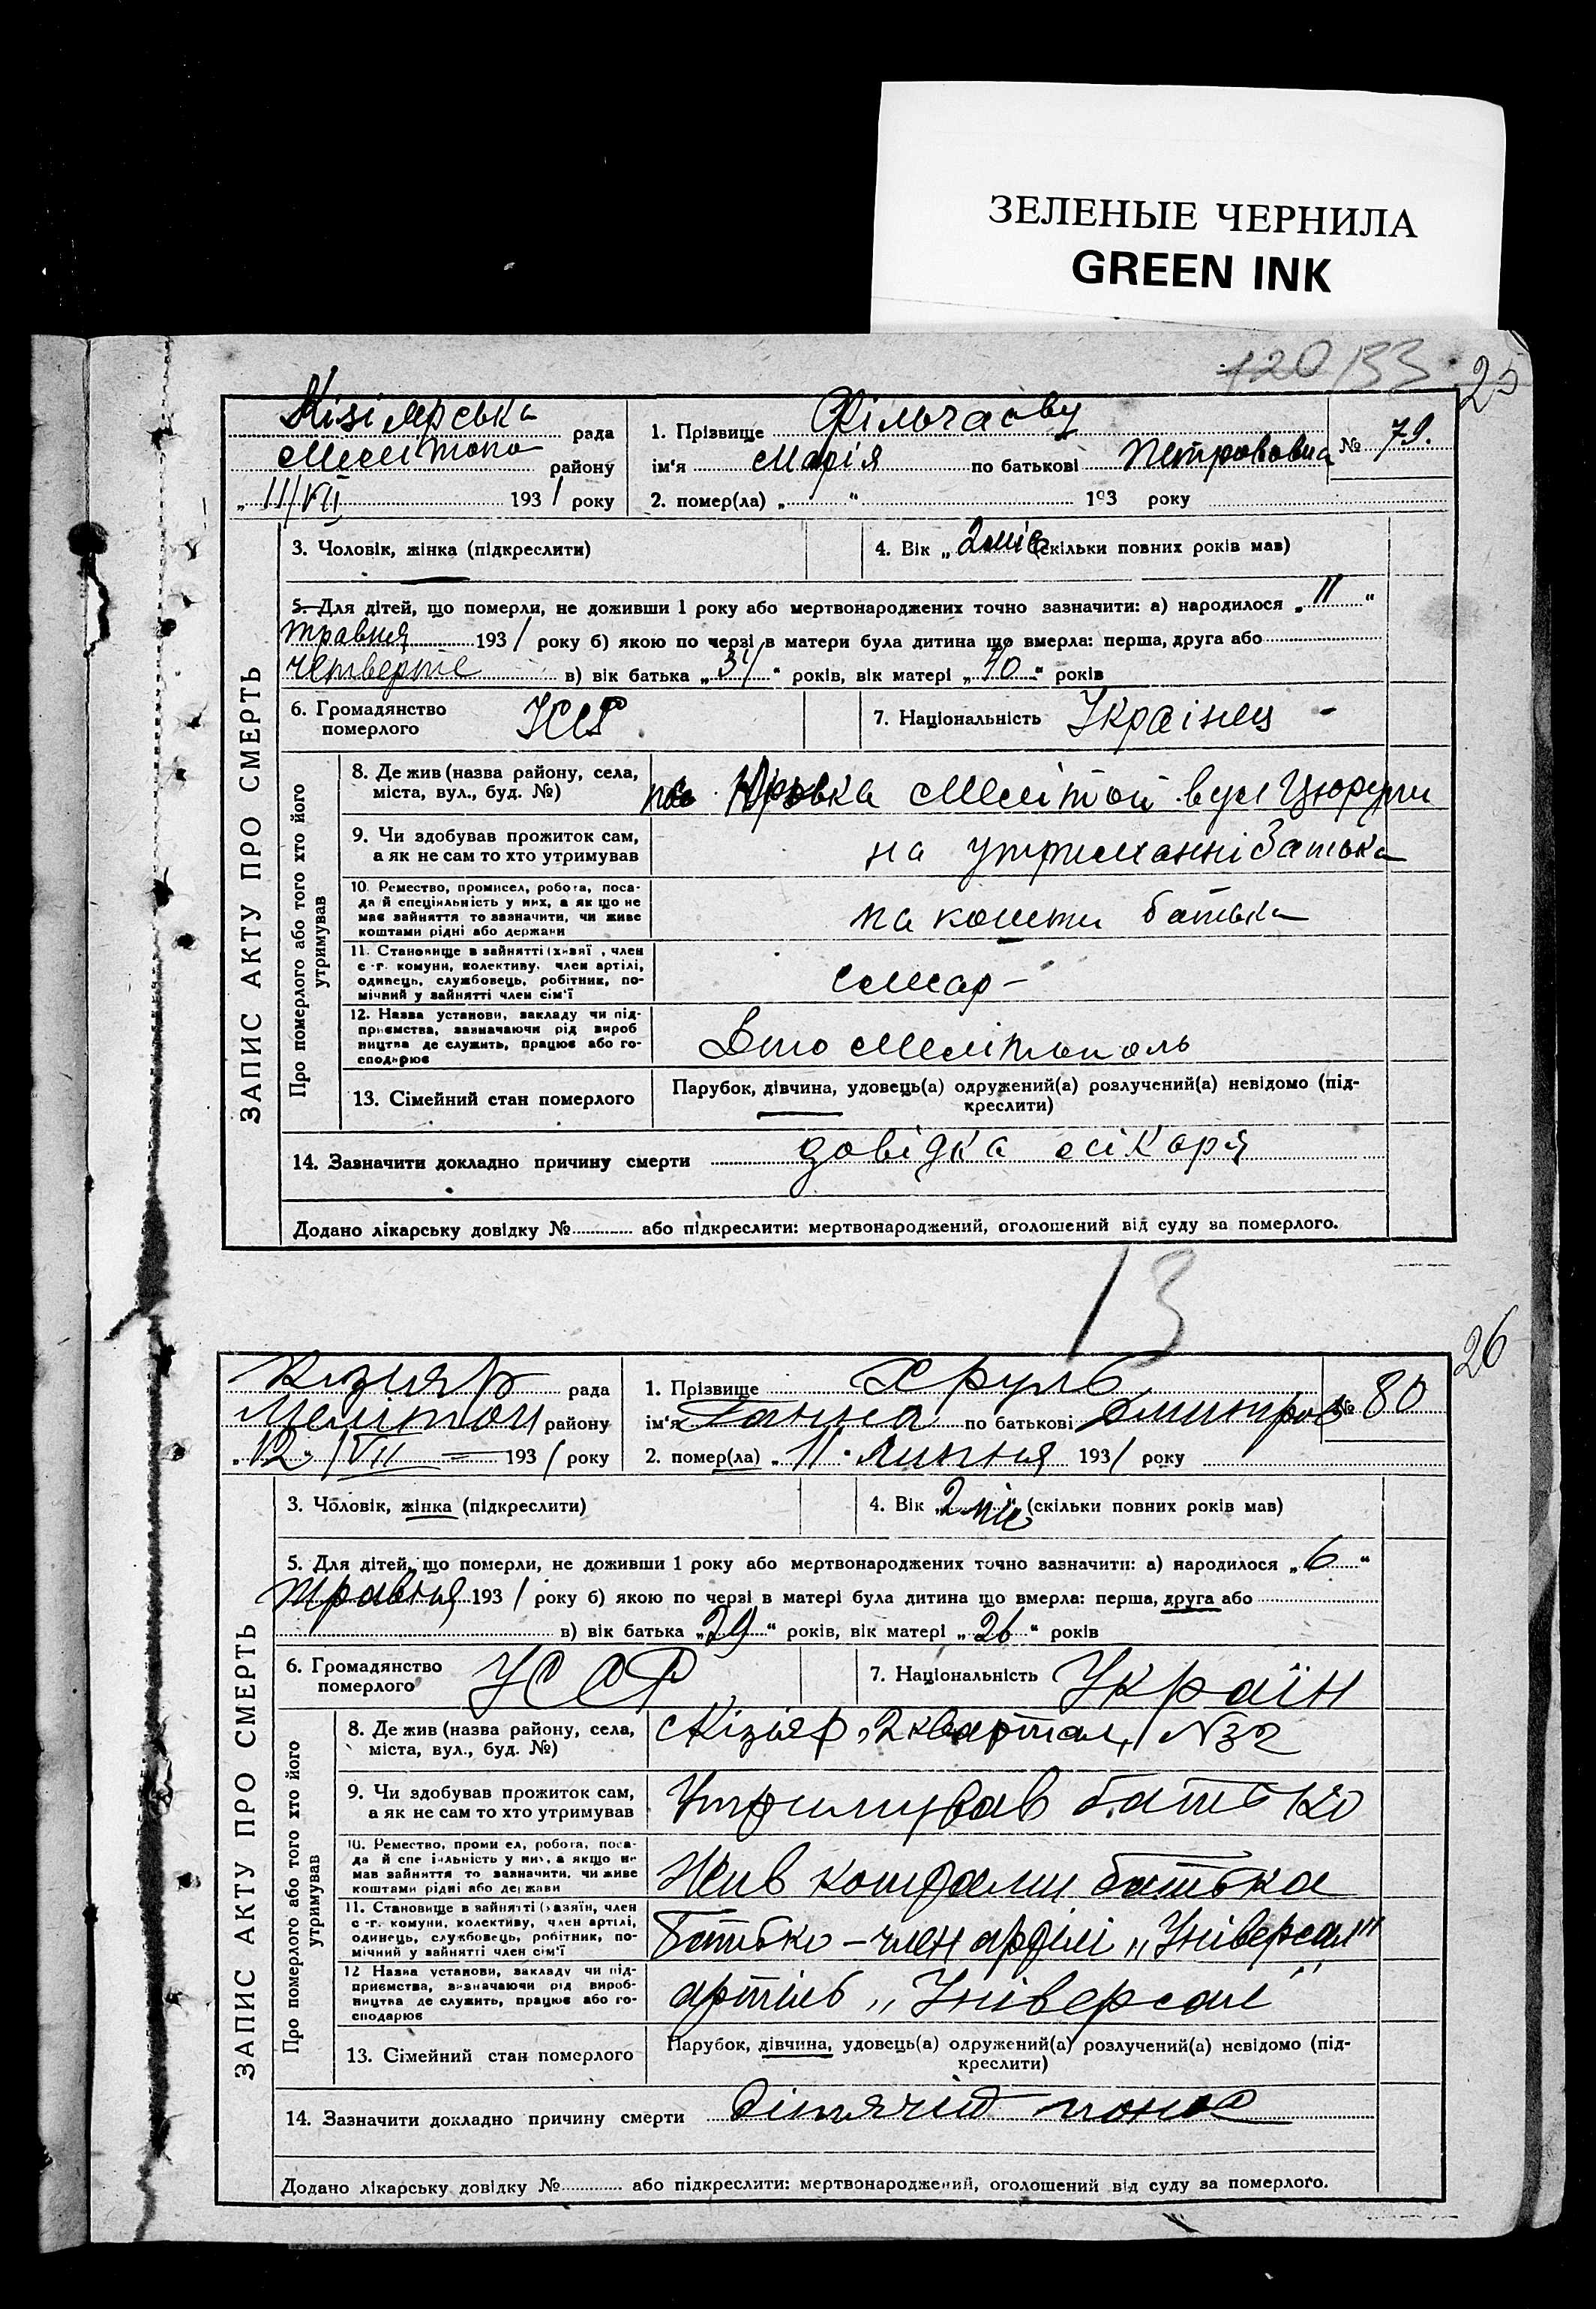 ЗЕЛЕНЫЕ ЧЕРНИЛА
GREEN INK
120 133 25
Кізіярська рада
Меліто району
„11/VII 1931 року
1. Прізвище
№ 79.
ім'я Марія по батькові Петрововна
2. помер(ла) „ “ 193 року
3. Чоловік, жінка (підкреслити)
4. Вік „2 міс (скільки повних років мав)
5. Для дітей, що померли, не доживши 1 року або мертвонароджених точно зазначити: а) народилося „11“
травня 1931 року б) якою по черзі в матери була дитина що вмерла: перша, друга або
четверте в) вік батька „ “ років, вік матері „40“ років
ЗАПИС АКТУ ПРО СМЕРТЬ
6. Громадянство
померлого
7. Національність Українец -
Про померлого або того хто його
утримував
8. Де жив (назва району, села,
міста, вул., буд. №)
Меліто вул Цюрупи
9. Чи здобував прожиток сам,
а як не сам то хто утримував
на утриманні батька
10. Ремество, промисел, робота, поса-
да й спеціяльність у них, а як що не
має зайняття то зазначити, чи живе
коштами рідні або держави
на кошти батька
11. Становище в зайнятті (хазяї , член
с -г. комуни, колективу, член артілі,
одинець, службовець, робітник, по-
мічний у зайнятті член сім'ї
12. Назва установи, закладу чи під-
приємства, зазначаючи рід вироб
ництва де служить, працює або го-
сподарює
Мелітополь
13. Сімейний стан померлого
Парубок, дівчина, удовець(а) одружений(а) розлучений(а) невідомо (під-
креслити)
14. Зазначити докладно причину смерти довідка лікаря
Додано лікарську довідку № або підкреслити: мертвонароджений, оголошений від суду за померлого.
13
26
Кізияр рада
Меліtоп району
„12„ /VII 1931 року
1. Прізвище Хруль
№ 80
ім'я Ганна по батькові Дмитров
2. помер(ла) „11“ Липня 1931 року
3. Чоловік, жінка (підкреслити)
4. Вік „2 міс (скільки повних років мав)
5. Для дітей, що померли, не доживши 1 року або мертвонароджених точно зазначити: а) народилося „6“
травня 1931 року б) якою по черзі в матері була дитина що вмерла: перша, друга або
в) вік батька „29“ років, вік матері „26“ років
ЗАПИС АКТУ ПРО СМЕРТЬ
6. Громадянство
померлого
УССР
7. Національність Україн
Про померлого або того хто його
утримував
8. Де жив (назва району, села,
міста, вул., буд. №)
Кізіяр, 2 квартал, №32
9. Чи здобував прожиток сам,
а як не сам то хто утримував
Утримував батько
10. Ремество, проми ел, робота, поса-
да й спе іяльність у них, а якщо не
мав зайняття то зазначити, чи живе
коштами рідні або держави
Жив коштами батька
11. Становище в зайнятті (хазяїн, член
с -г. комуни, колективу, член артілі,
одинець, службовець, робітник, по-
мічний у зайнятті член сім'ї
Батько – член артілі „Універсал"
12 Назва установи, закладу чи під-
приємства, визначаючи рід вироб-
ництва де служить, працює або го-
сподарює
артіль „Універсал"
13. Сімейний стан померлого
Парубок, дівчина, удовець(а) одружений(а) розлучений(а) невідомо (під-
креслити)
14. Зазначити докладно причину смерти понос
Додано лікарську довідку № або підкреслити: мертвонароджений, оголошений від суду за померлого.